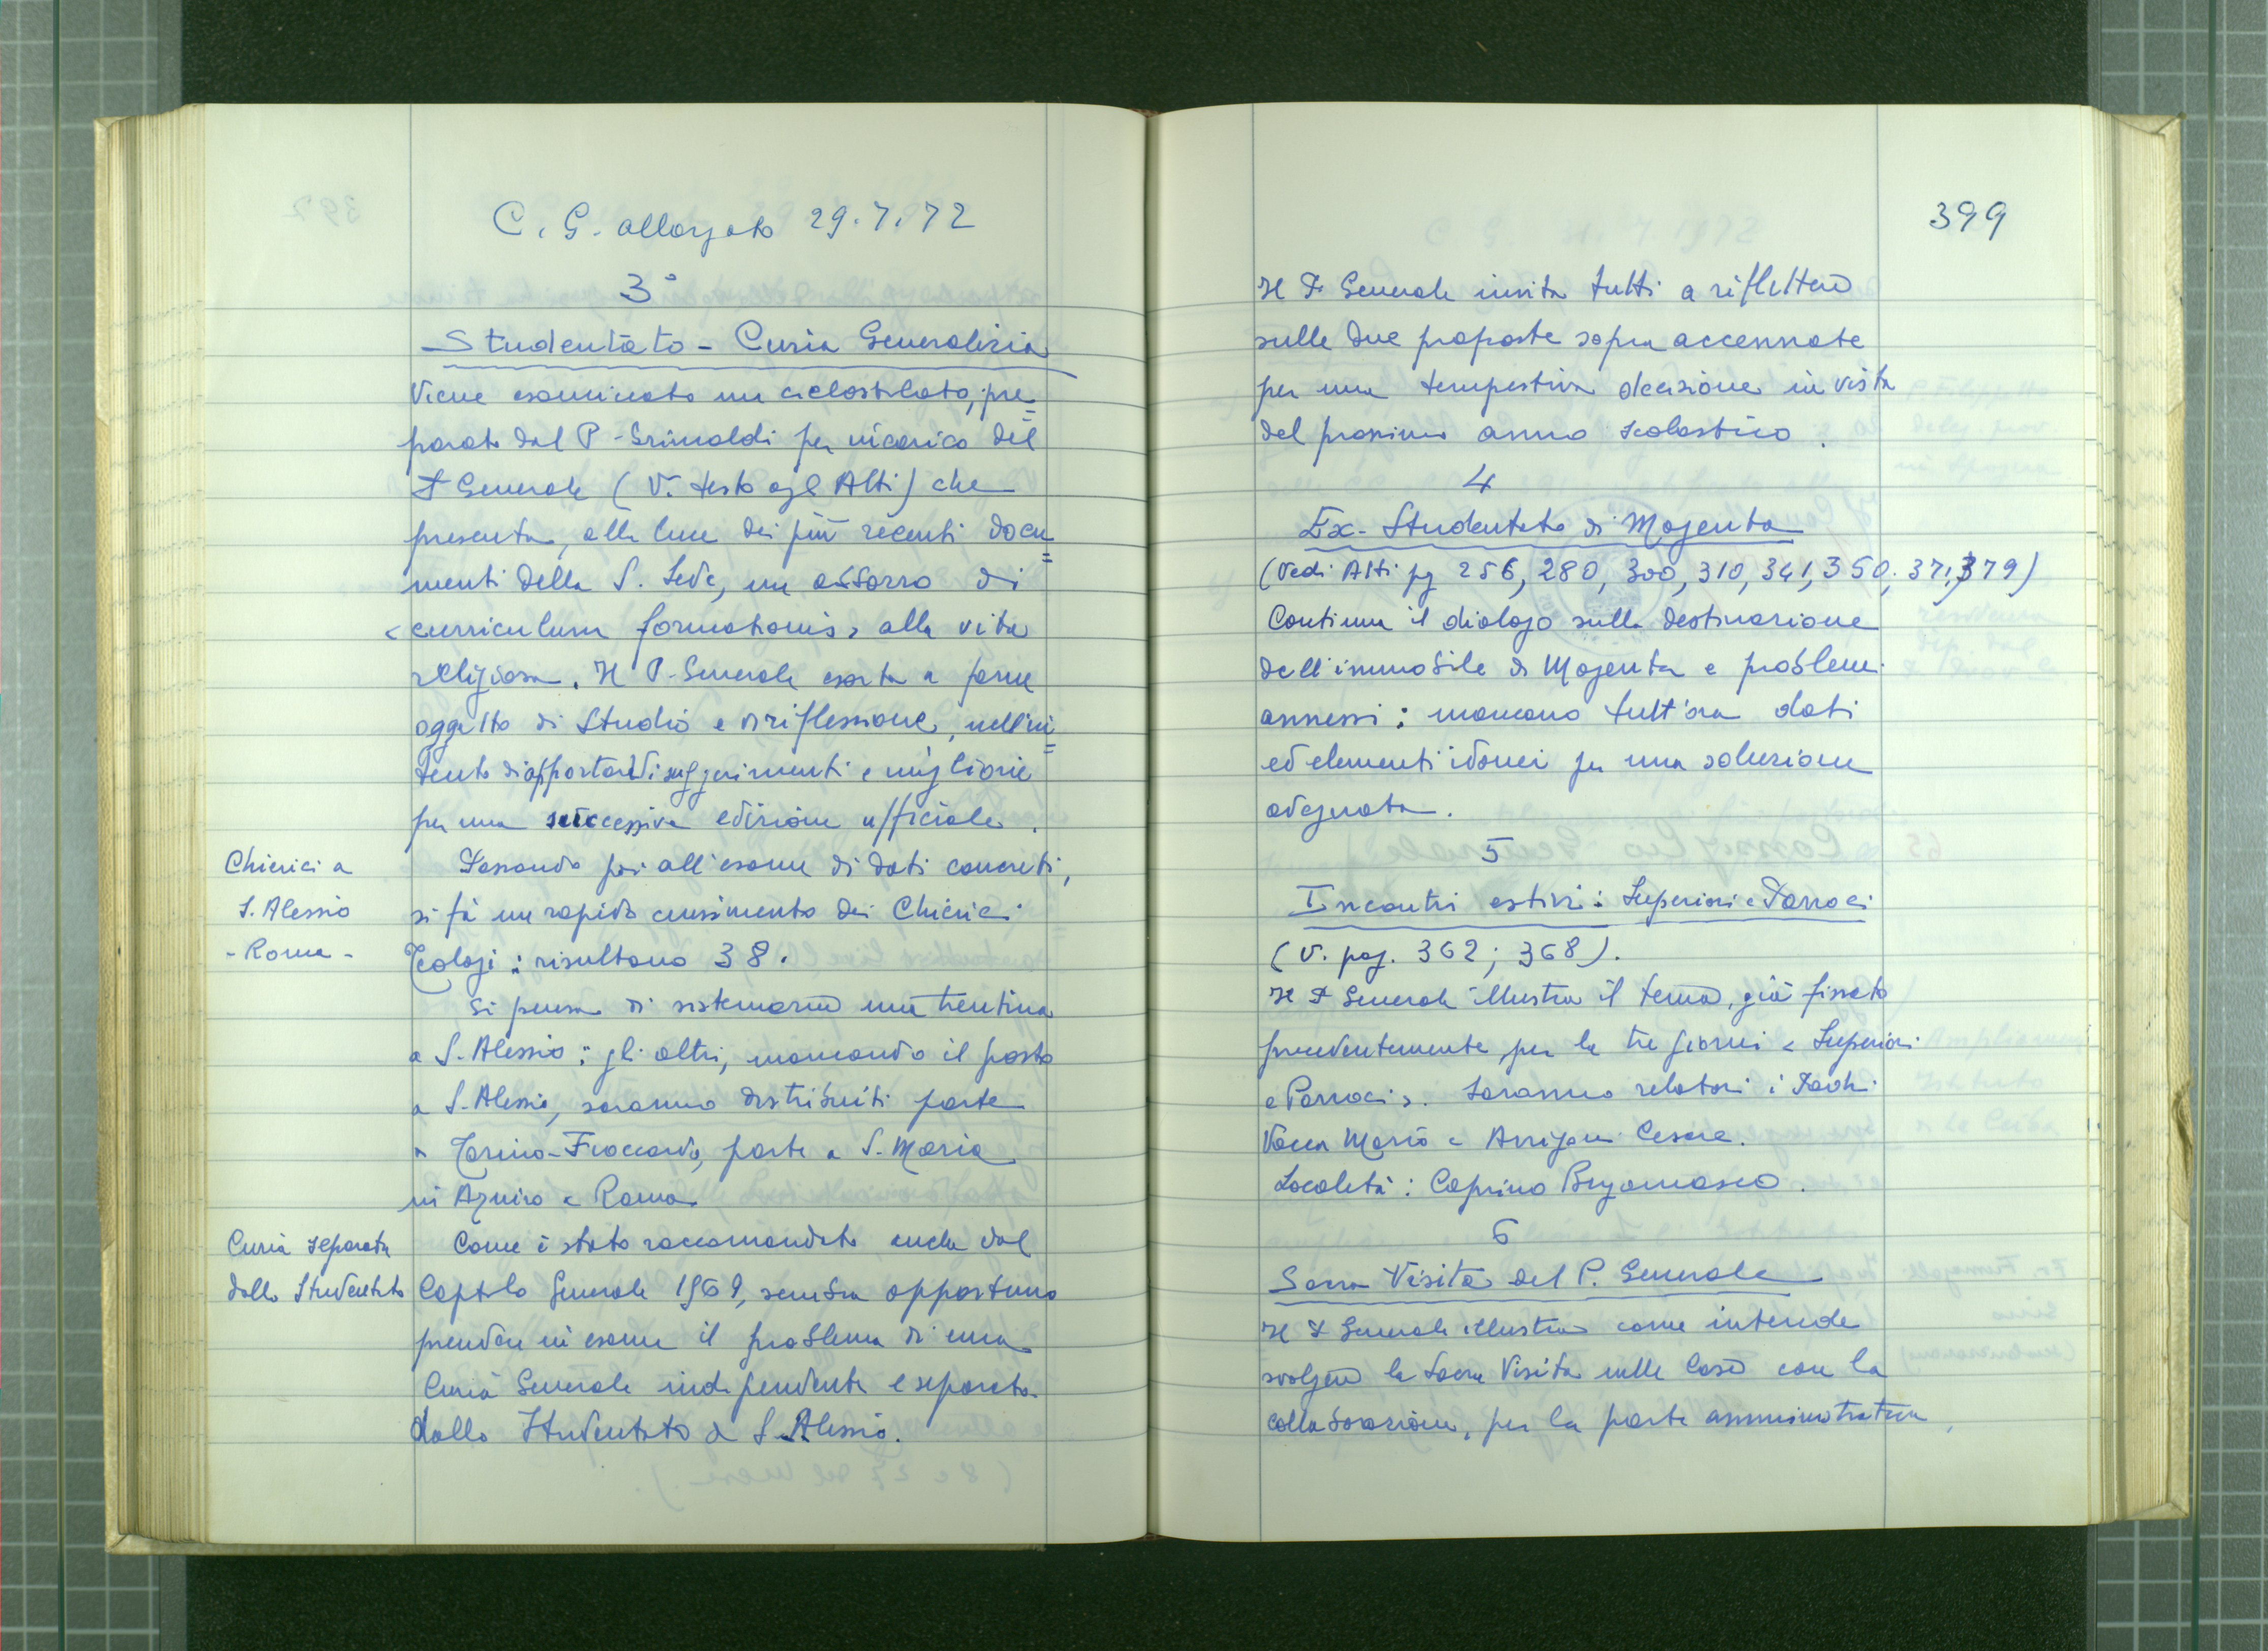 C. G. allargato 29.7.72
3°
Studentato - Curia Generalizia
Viene esaminato un ciclostilato, pre=
parato dal P. Grimaldi per incarico del
P Generale (V. testo agl Atti) che
presenta, alla luce dei più recenti docu=
menti della S. Sede, un abbozzo di
<curriculum formationis> alla vita
religiosa. Il P. Generale esorta a farne
oggetto di studio e di riflessione, nell'in=
tento di apportarvi suggerimenti e migliorie
per una successiva edizione ufficiale.
Chierici a
S. Alessio
- Roma -
Passando poi all'esame di dati concreti,
si fà un rapido censimento dei Chierici
Teologi: risultano 38.
Si pensa di sistemarne una trentina
a S. Alessio: gli altri, mancando il posto
a S. Alessio, saranno distribuiti parte
a Torino-Fioccardo, parte a S. Maria
in Aquiro a Roma.
Curia separata
dallo Studentato
Come è stato raccomandato anche dal
Capitolo Generale 1969, sembra opportuno
prendere in esame il problema di una
Curia Generale indipendente e separata
dallo Studentato di S. Alessio.
399
Il P. Generale invita tutti a riflettere
sulle due proposte sopra accennate
per una tempestiva decisione in vista
del prossimo anno scolastico.
4
Ex-Studentato di Magenta
(Vedi Atti pg 256, 280, 300, 310, 341, 350, 371, 379)
Continua il dialogo sulla destinazione
dell'immobile di Magenta e problemi
annessi: mancano tutt'ora dati
ed elementi idonei per una soluzione
adeguata.
5
Incontri estivi: Superiori e Parroci
(V. pag. 362; 368).
Il P Generale illustra il tema, già fissato
precedentemente per la tre giorni < Superiori
e Parroci >. Saranno relatori i Padri
Vacca Mario e Arrigoni Cesare.
Località: Caprino Bergamasco.
6
Sacra Visita del P. Generale
Il P Generale illustra come intende
svolgere la Sacra Visita nelle Case con la
collaborazione, per la parte amministrativa,